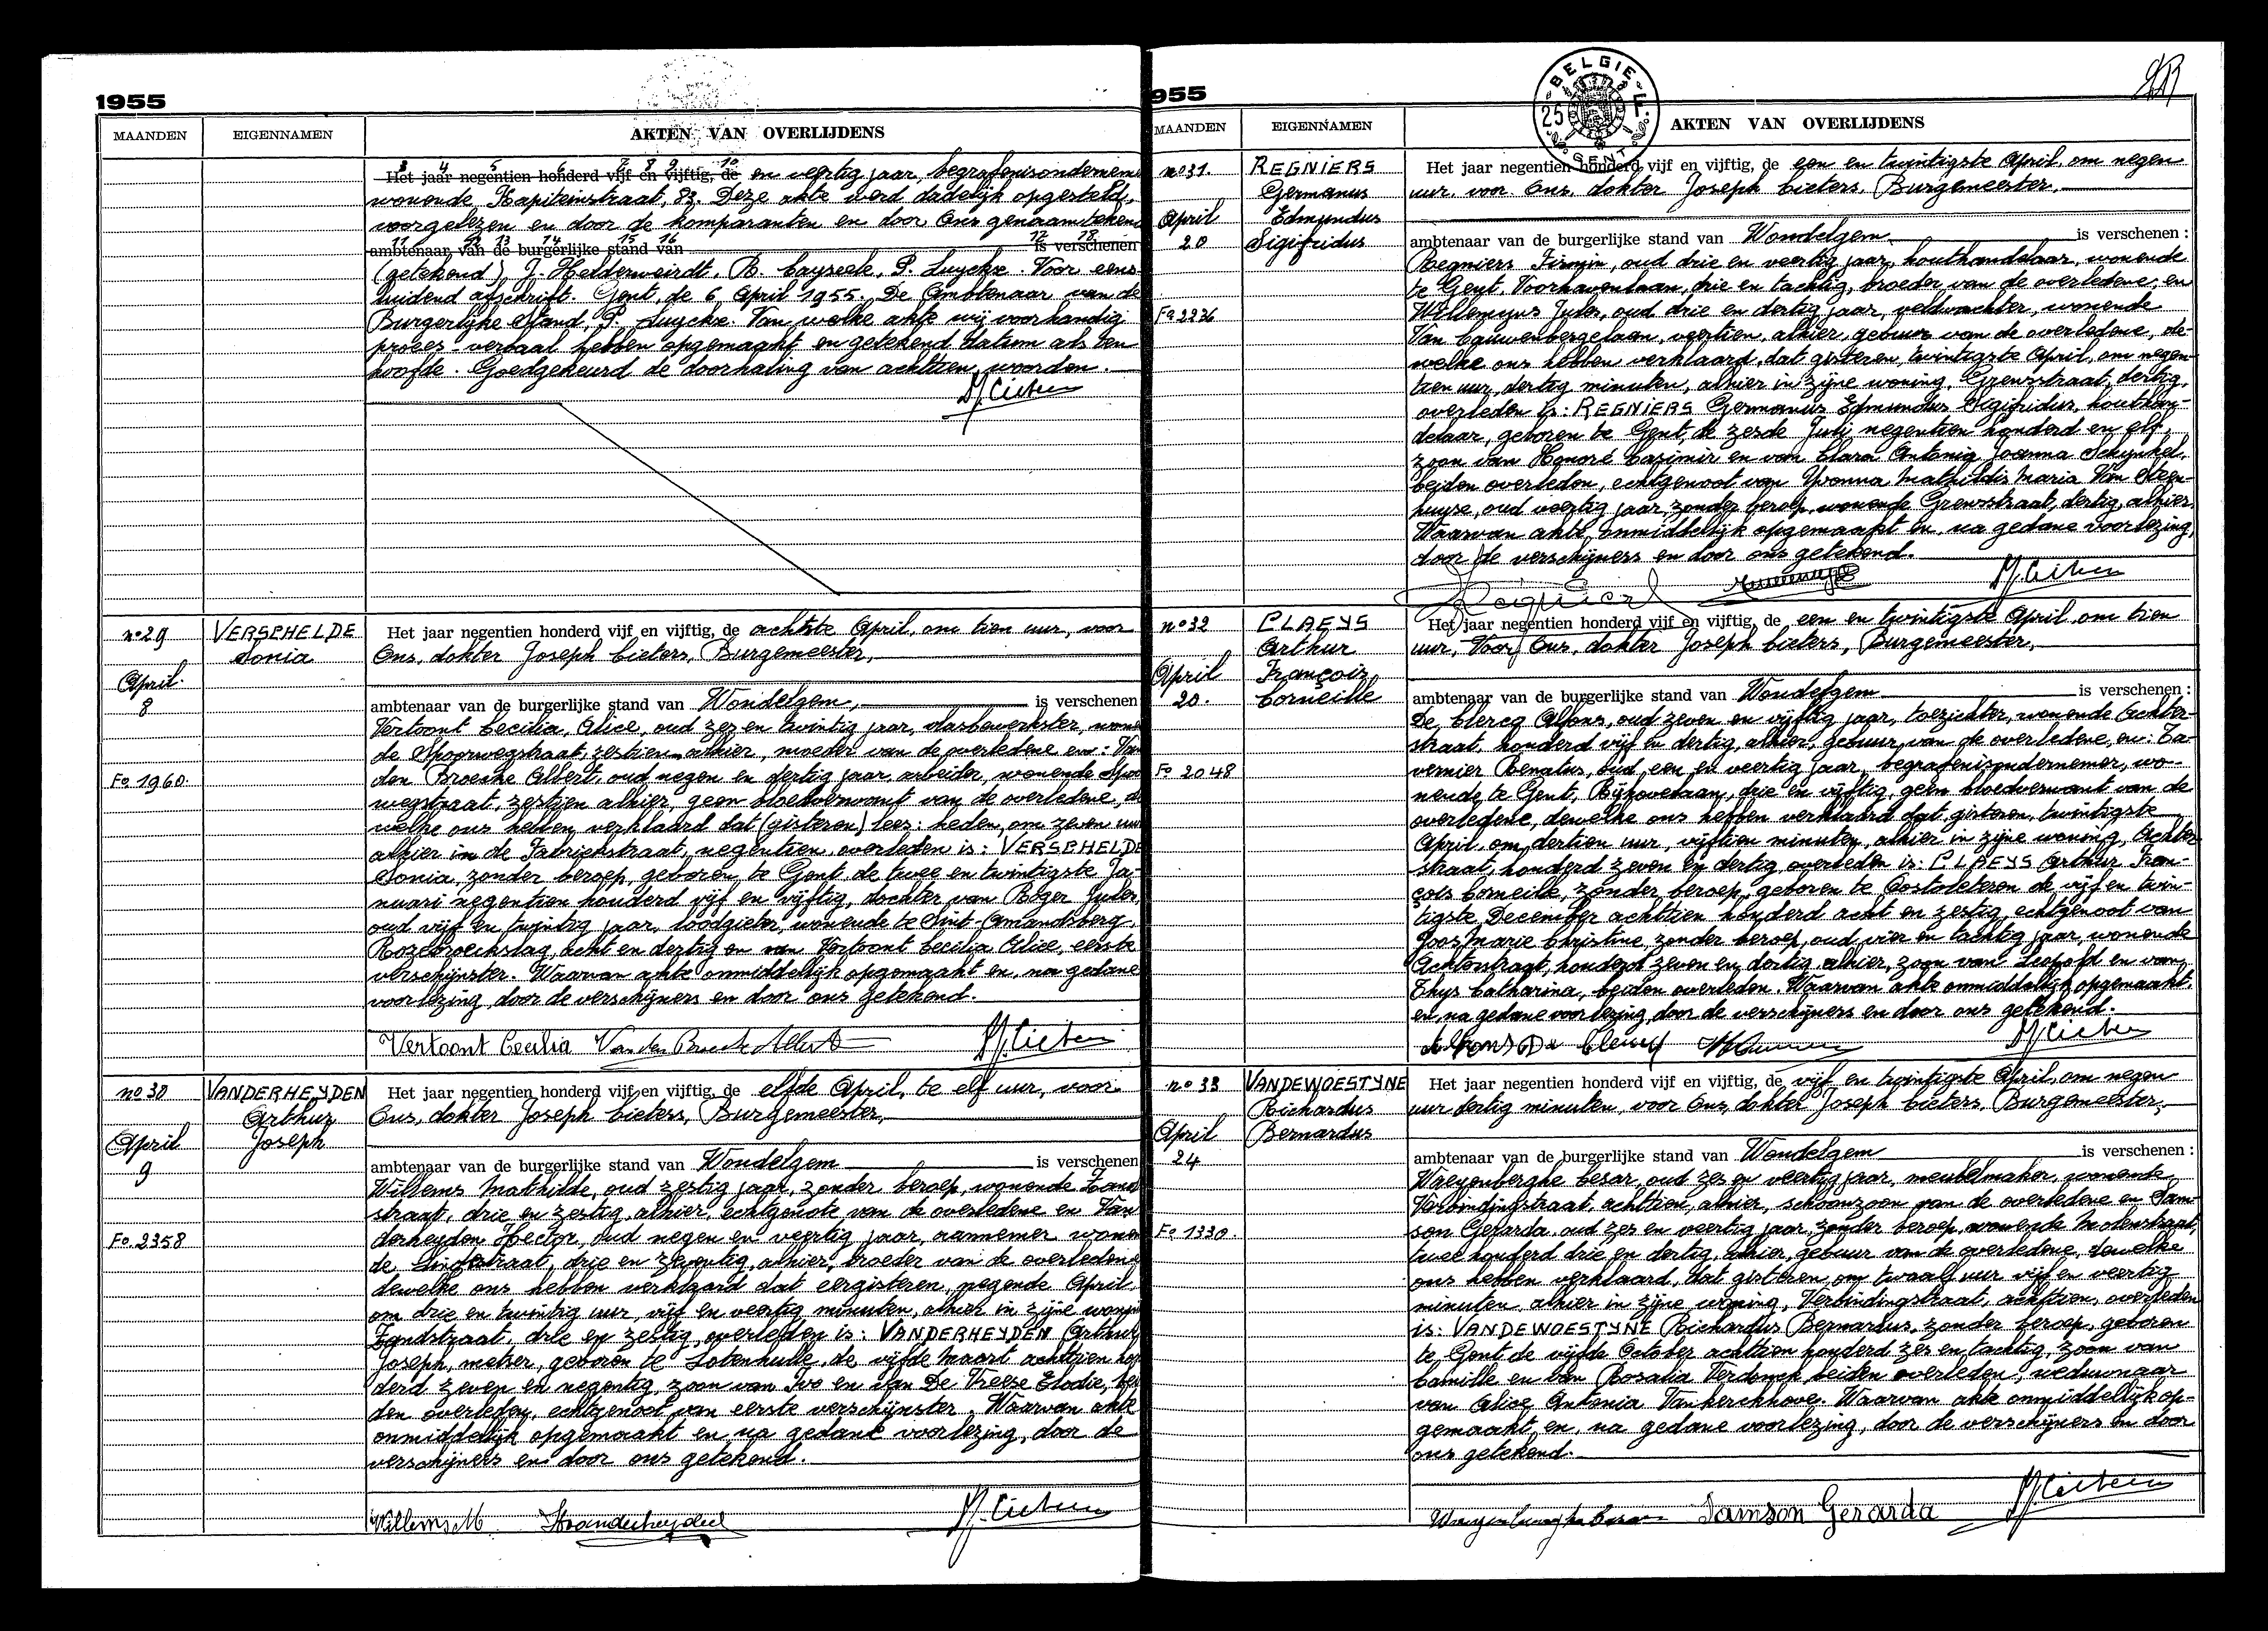 1955
MAANDEN EIGENNAMEN AKTEN VAN OVERLIJDENS
3 4 5 6 7 8 9 10
Het jaar negentien honderd vijf en vijftig, de en veertig jaar, begrafenisondernem
wonende, Kapiteinstraat, 83. Deze akte werd dadelijk opgesteld,
voorgelezen en door de komparanten en door Ons genaamtekend
11 12 13 14 15 16 17 18
ambtenaar van de burgerlijke stand van is verschenen
(getekend) J. Helderweirdt, R. Cayseele, P. Luyckx. Voor eens-
luidend afschrift. Gent, de 6 April 1955. De Ambtenaar van de
Burgerlijke Stand, P. Luyckx. Van welke akte wij voorhandig
proces-verbaal hebben opgemaakt en getekend datum als ten
hoofde. Goedgekeurd de doorhaling van achttien woorden.
n° 29
VERSCHELDE
Sonia
April
8
Fo 1960.
Het jaar negentien honderd vijf en vijftig, de achtste April, om tien uur, voor
Ons, dokter Joseph Cieters, Burgemeester,
ambtenaar van de burgerlijke stand van Wondelgem, is verschenen
Vertoont Cecilia, Alice, oud zes en twintig jaar, vlasbewerkster, wonen
de Spoorwegstraat, zestien alhier, moeder van de overledene en: Van
den Broecke Albert, oud negen en dertig jaar, arbeider, wonende Spoo
wegstraat, zestien alhier, geen bloedverwant van de overledene, de
welke ons hebben verklaard dat (gisteren) lees: heden, om zeven uur
alhier in de Fabriekstraat, negentien, overleden is: VERSCHELDE
Sonia, zonder beroep, geboren te Gent de twee en twintigste Ja-
nuari negentien honderd vijf en vijftig, dochter van Roger Jules,
oud vijf en twintig jaar, loodgieter, wonende te Sint-Amandsberg,
Rozebroekslag, acht en dertig en van Vertoont Cecilia Alice, eerste
verschijnster. Waarvan akte onmiddelijk opgemaakt en, na gedane
voorlezing, door de verschijners en door ons getekend.
Vertoont Cecilia Van den Broecke Albert
n° 30
VANDERHEYDEN
Arthur
Joseph
April
9
Fo. 2358
Het jaar negentien honderd vijf en vijftig, de elfde April, te elf uur, voor
Ons, dokter Joseph Cieters, Burgemeester,
ambtenaar van de burgerlijke stand van Wondelgem is verschenen
Willems Mathilde, oud zestig jaar, zonder beroep, wonende Zand
straat, drie en zestig, alhier, echtgenote van de overledene en Van
derheyden Hector, oud negen en veertig jaar, aannemer wonen
de Lindestraat, drie en zeventig, alhier, broeder van de overledene
dewelke ons hebben verklaard dat eergisteren, negende April,
om drie en twintig uur, vijf en veertig minuten, alhier in zijne wonin
Zandstraat, drie en zestig, overleden is: VANDERHEYDEN Arthur
Joseph, metser, geboren te Lotenhulle, de vijfde Maart achttien hon
derd zeven en negentig, zoon van Ivo en van De Vreese Elodie, bei
den overleden, echtgenoot van eerste verschijnster. Waarvan akte
onmiddelijk opgemaakt en na gedane voorlezing, door de
verschijners en door ons getekend.
Willems M. Hvanderheyden
955
BELGIE 25 F
MAANDEN EIGENNAMEN AKTEN VAN OVERLIJDENS
n° 31.
REGNIERS
Germanus
Edmundus
Sigifridus
April
20
Fo 2236
Het jaar negentien honderd vijf en vijftig, de een en twintigste April, om negen
uur, voor Ons, dokter Joseph Cieters, Burgemeester,
ambtenaar van de burgerlijke stand van Wondelgem is verschenen :
Regniers Firmin, oud drie en veertig jaar, houthandelaar, wonende
te Gent, Voorhavenlaan, drie en tachtig, broeder van de overledene, en
Willemyns Jules, oud drie en dertig jaar, veldwachter, wonende
Van Cauwenbergelaan, veertien, alhier, gebuur van de overledene, de-
welke ons hebben verklaard, dat gisteren, twintigste April, om negen-
tien uur, dertig minuten, alhier in zijne woning, Grensstraat, dertig,
overleden is: REGNIERS Germanus Edmundus Sigifridus, houthan-
delaar, geboren te Gent, de zesde Juli negentien honderd en elf,
zoon van Honoré Casimir en van Clara Antonia Joanna Schynkel,
beiden overleden, echtgenoot van Yvonna Mathildis Maria Van Steen-
huyse, oud veertig jaar, zonder beroep, wonende Grensstraat, dertig, alhier.
Waarvan akte, onmiddelijk opgemaakt en, na gedane voorlezing,
door de verschijners en door ons getekend.
n° 32
CLAEYS
Arthur
François
Corneille
April
20.
Fo 2048
Het jaar negentien honderd vijf en vijftig, de een en twintigste April, om tien
uur, Voor Ons, dokter Joseph Cieters, Burgemeester,
ambtenaar van de burgerlijke stand van Wondelgem is verschenen :
De Clercq Alfons, oud zeven en vijftig jaar, toezichter, wonende Achter-
straat, honderd vijf en dertig, alhier, gebuur van de overledene, en: Ta-
vernier Renatus, oud een en veertig jaar, begrafenisondernemer, wo-
nende te Gent, Rijhovelaan, drie en vijftig, geen bloedverwant van de
overledene, dewelke ons hebben verklaard dat, gisteren, twintigste
April, om dertien uur, vijftien minuten, alhier in zijne woning, Achter
straat, honderd zeven en dertig, overleden is: CLAEYS Arthur Fran-
çois Corneille, zonder beroep, geboren te Oosteeklo de vijf en twin-
tigste December achttien honderd acht en zestig, echtgenoot van
Joos Marie Christine, zonder beroep, oud vier en tachtig jaar, wonende
Achterstraat, honderd zeven en dertig, alhier, zoon van Leopold en van
Thys Catharina, beiden overleden. Waarvan akte onmiddellijk opgemaakt,
en, na gedane voorlezing, door de verschijners en door ons getekend.
Alfons De Clercq
n° 33
VANDEWOESTYNE
Richardus
Bernardus
April
24
Fo 1330.
Het jaar negentien honderd vijf en vijftig, de vijf en twintigste April, om negen
uur dertig minuten, voor Ons, dokter Joseph Cieters, Burgemeester,
ambtenaar van de burgerlijke stand van Wondelgem is verschenen :
Waeyenberghe Cesar, oud zes en veertig jaar, meubelmaker, wonende
Verbindingstraat, achttien, alhier, schoonzoon van de overledene en Sam-
son Gerarda, oud zes en veertig jaar, zonder beroep, wonende Molenstraat,
twee honderd drie en dertig, alhier, gebuur van de overledene, dewelke
ons hebben verklaard, dat gisteren, om twaalf uur vijf en veertig
minuten, alhier in zijne woning, Verbindingstraat, achttien, overleden
is: VANDEWOESTYNE Richardus Bernardus, zonder beroep, geboren
te Gent de vijfde October achttien honderd zes en tachtig, zoon van
Camille en van Rosalia Verdonck beiden overleden, weduwnaar
van Alice Antonia Vankerckhove. Waarvan akte onmiddellijk op-
gemaakt en, na gedane voorlezing, door de verschijners en door
ons getekend.
Samson Gerarda